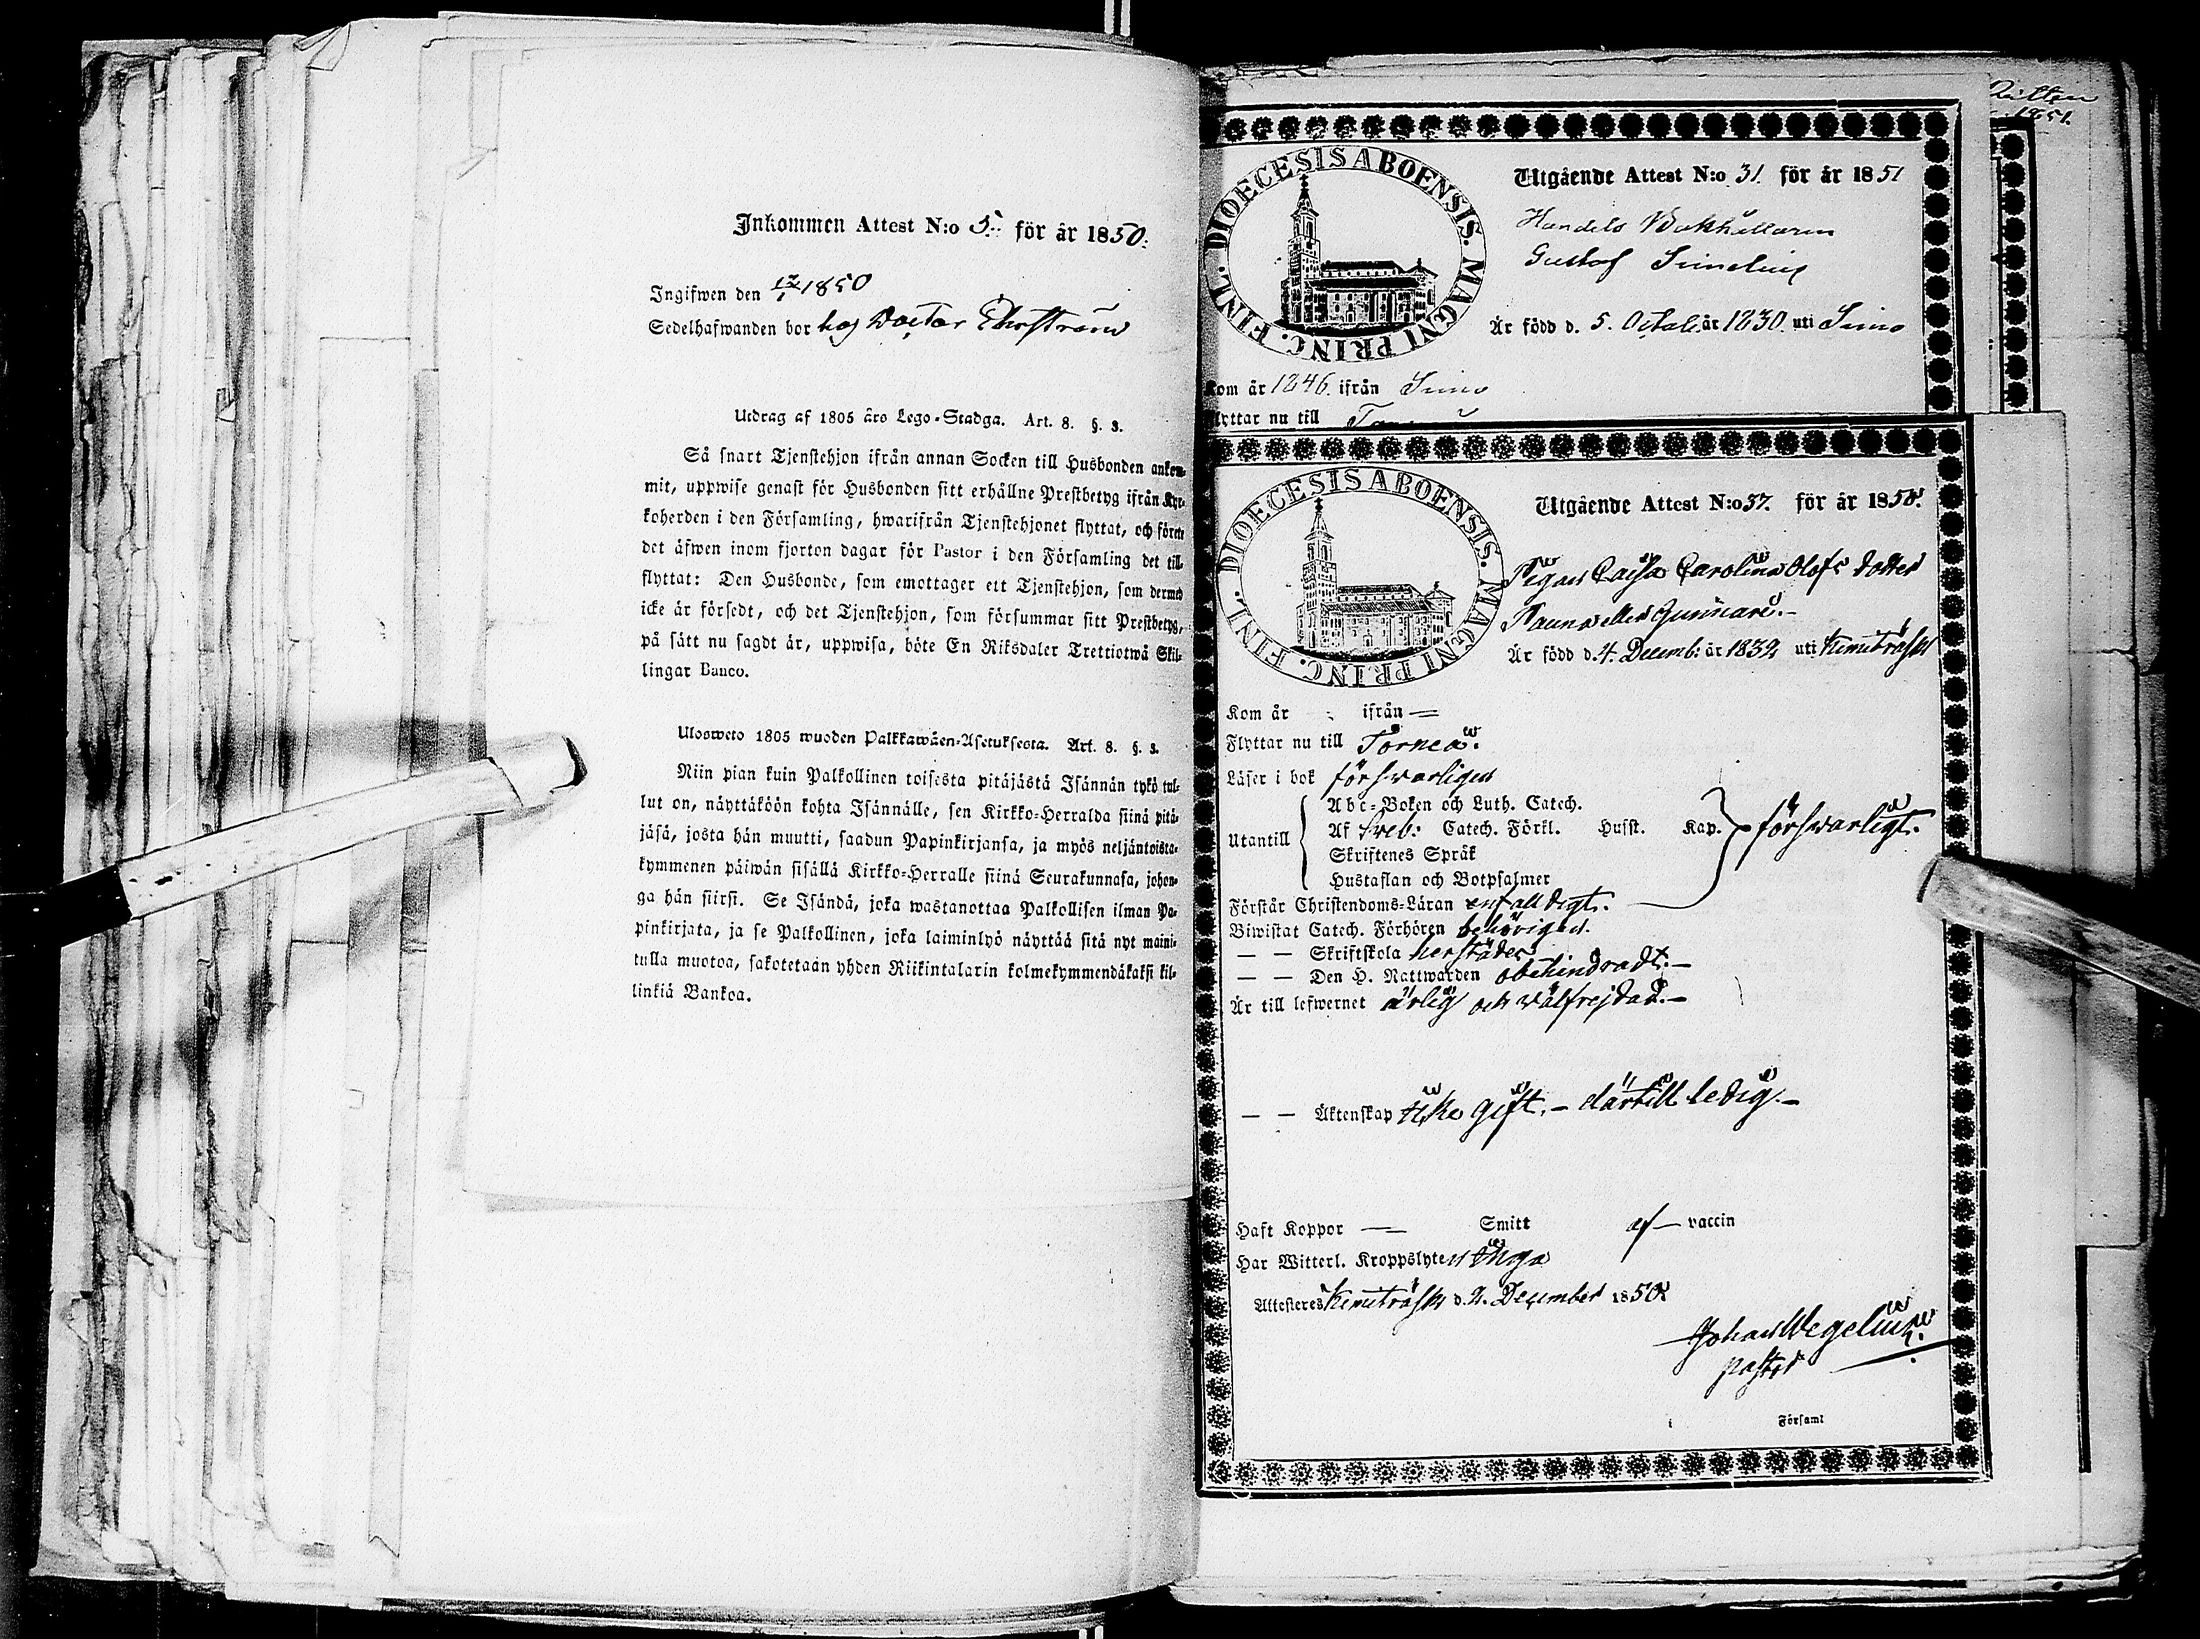 Inkommen Attest N:o 5. för år 1850.
Ingifwen den 12/1 1850
Sedelhafwanden bor hos Doctor Ehrström
Utdrag af 1805 års Lego-Stadga. Art. 8. §. 3.
Så snart Tjenstehjon ifrån annan Socken till Husbonden ankom-
mit, uppwise genast för Husbonden sitt erhållne Prestbetyg ifrån Kyr-
koherden i den Församling, hwarifrån Tjenstehjonet flyttat, och förete
det äfwen inom fjorton dagar för Pastor i den Församling det till-
flyttat: Den Husbonde, som emottager ett Tjenstehjon, som dermed
icke är försedt, och det Tjenstehjon, som försummar sitt Prestbetyg,
på sätt nu sagdt är, uppwisa, böte En Riksdaler Trettiotwå Skil-
lingar Banco.
Ulosweto 1805 wuoden Palkkawäen-Asetuksesta. Art. 8. §. 3.
Niin pian kuin Palkollinen toisesta pitäjästä Isännän tykö tul-
lut on, näyttäköön kohta Isännälle, sen Kirkko-Herralda siinä pitä-
jäsä, josta hän muutti, saadun Papinkirjansa, ja myös neljäntoista-
kymmenen päiwän sisällä Kirkko-Herralle siinä Seurakunnasa, johon-
ga hän siirsi. Se Isändä, joka wastanottaa Palkollisen ilman Pa-
pinkirjata, ja se Palkollinen, joka laiminlyö näyttää sitä nyt maini-
tulla muotoa, sakotetaan yhden Riikintalarin kolmekymmendäkaksi kil-
linkiä Bankoa.
1851.
DIOECESIS ABOENSIS. MAGNI PRINC. FINL.
Utgående Attest N:o 31. för år 1851
Handels Bokhållaren
Gustof Simelius
Är född d. 5. Octob. år 1830. uti Simo
Kom år 1846. ifrån Simo
Flyttar nu till
DIOECESIS ABOENSIS. MAGNI PRINC. FINL.
Utgående Attest N:o 37. för år 1850.
Pigan Caisa Carolina Olofs dotter
Gunnare.
Är född d. 4. Decemb: år 1832 uti Kemiträsk
Kom år ifrån —
Flyttar nu till Torneå.
Läser i bok försvarligen
Utantill
Abc-Boken och Luth. Catech.
Af Sveb: Catech. Förkl. Husst. Kap. försvarligt.
Skriftenes Språk
Hustaflan och Botpsalmer
Förstår Christendoms-Läran enfalldigt.
Biwistat Catech. Förhören behörigen.
— — Skriftskola herstädes
— — Den H. Nattwarden obehindradt.—
Är till lefwernet ärlig och välfrejdad.—
— — Äktenskap icke gift.— därtill ledig.—
Haft Koppor — Smitt af — vaccin
Har Witterl. Kroppslyten inga
Attesteres Kemiträsk d. 2. December 1850.
Johan Wegelius.
pastor
i Församl